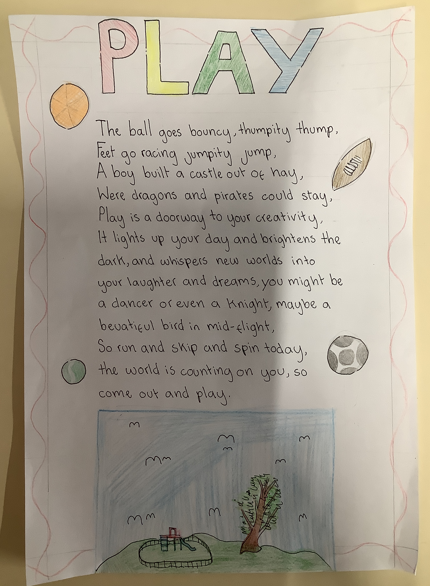 PLAY
The ball goes bouncy, thumpity thump,
Feet go racing jumpity jump,
A boy built a castle out of hay,
Were dragons and pirates could stay,
Play is a doorway to your creativity,
It lights up your day and brightens the
dark, and whispers new worlds into
your laughter and dreams, you might be
a dancer or even a Knight, maybe a
beuatiful bird in mid-flight,
So run and skip and spin today,
the world is counting on you, so
come out and play.